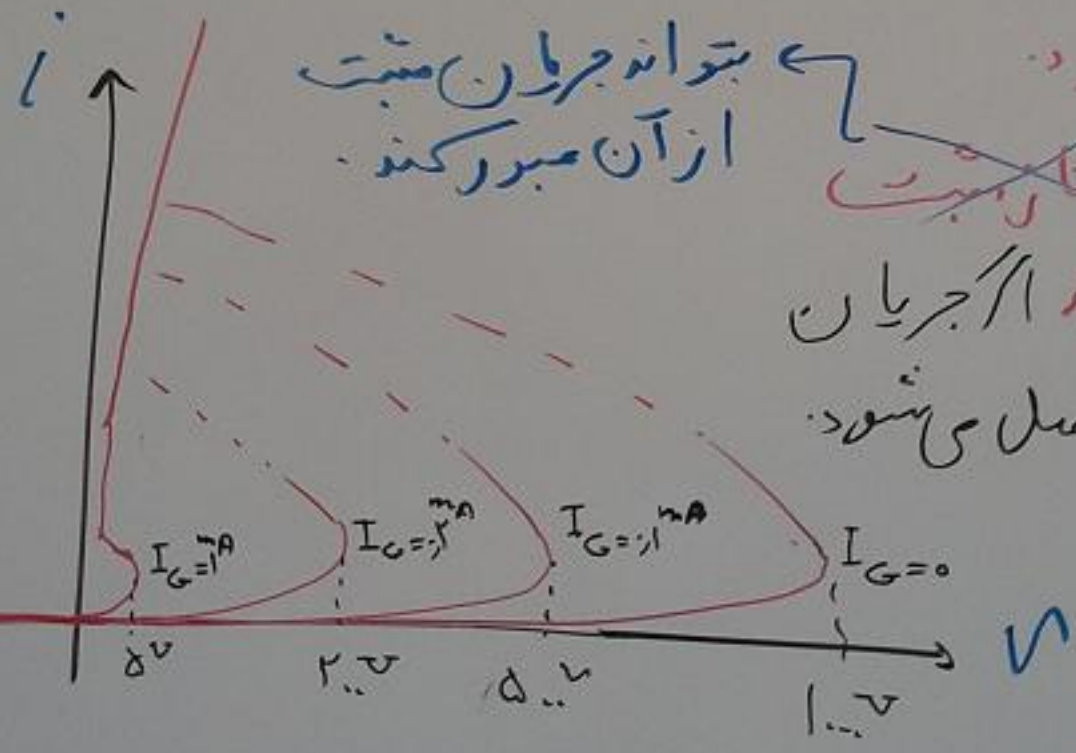 i
بتواند جریان مثبت
از آن عبور کند.
اگر جریان
می‌شود.
I_G=۱mA
I_G=۰٫۲mA
I_G=۰٫۱mA
I_G=۰
۵v
۲۰۰v
۵۰۰v
۱۰۰۰v
v